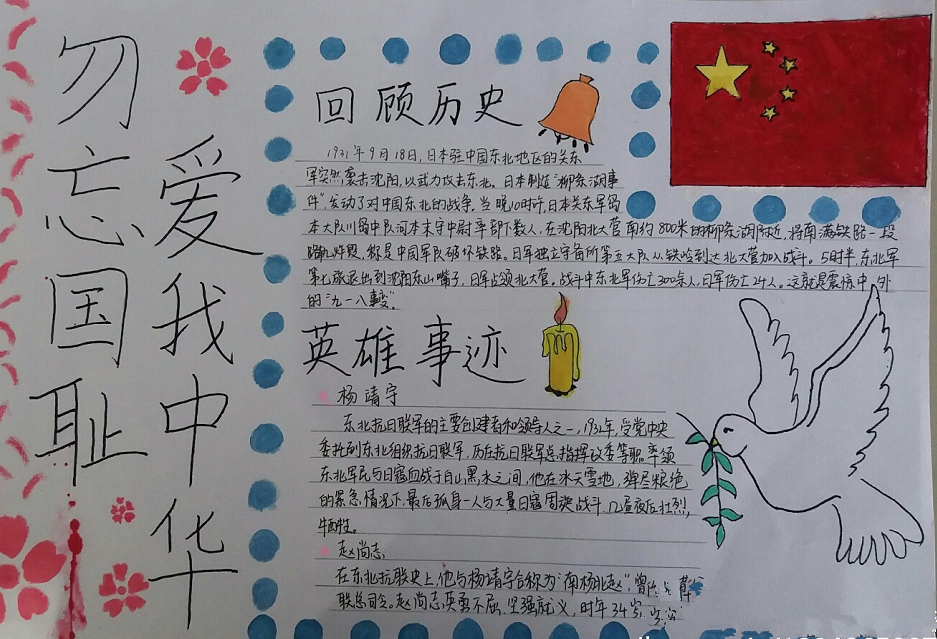 勿忘国耻
爱我中华
回顾历史
1931年9月18日,日本驻中国东北地区的关东
军突然袭击沈阳,以武力攻击东北。日本制造"柳条湖事
件",发动了对中国东北的战争。当晚10时许,日本关东军
本大队川岛中队河本末守中尉率部下数人,在沈阳北大营南约800米的柳条湖附近,将南满铁路一段
炸毁,称是中国军队破坏铁路。日军独立守备所第五大队从铁岭到达北大营加入战斗。5时半,东北军
第七旅退出到沈阳东山嘴子,日军占领北大营。战斗中东北军伤亡300余人,日军伤亡24人。这就是震惊中外
的"九一八事变"。
英雄事迹
杨靖宇
东北抗日联军的主要创建者和领导人之一,1932年,受党中央
委托到东北组织抗日联军,历任联军总指挥政委等职率领
东北军民与日寇血战于白山黑水之间,他在冰天雪地,弹尽粮绝
的紧急情况下,最后孤身一人与大量日寇周旋战斗几昼夜后壮烈
牺牲。
赵尚志
在东北抗联史上,他与杨靖宇合称为"南杨北赵",曾任
联总司令。赵尚志英勇不屈,坚强就义,时年34岁